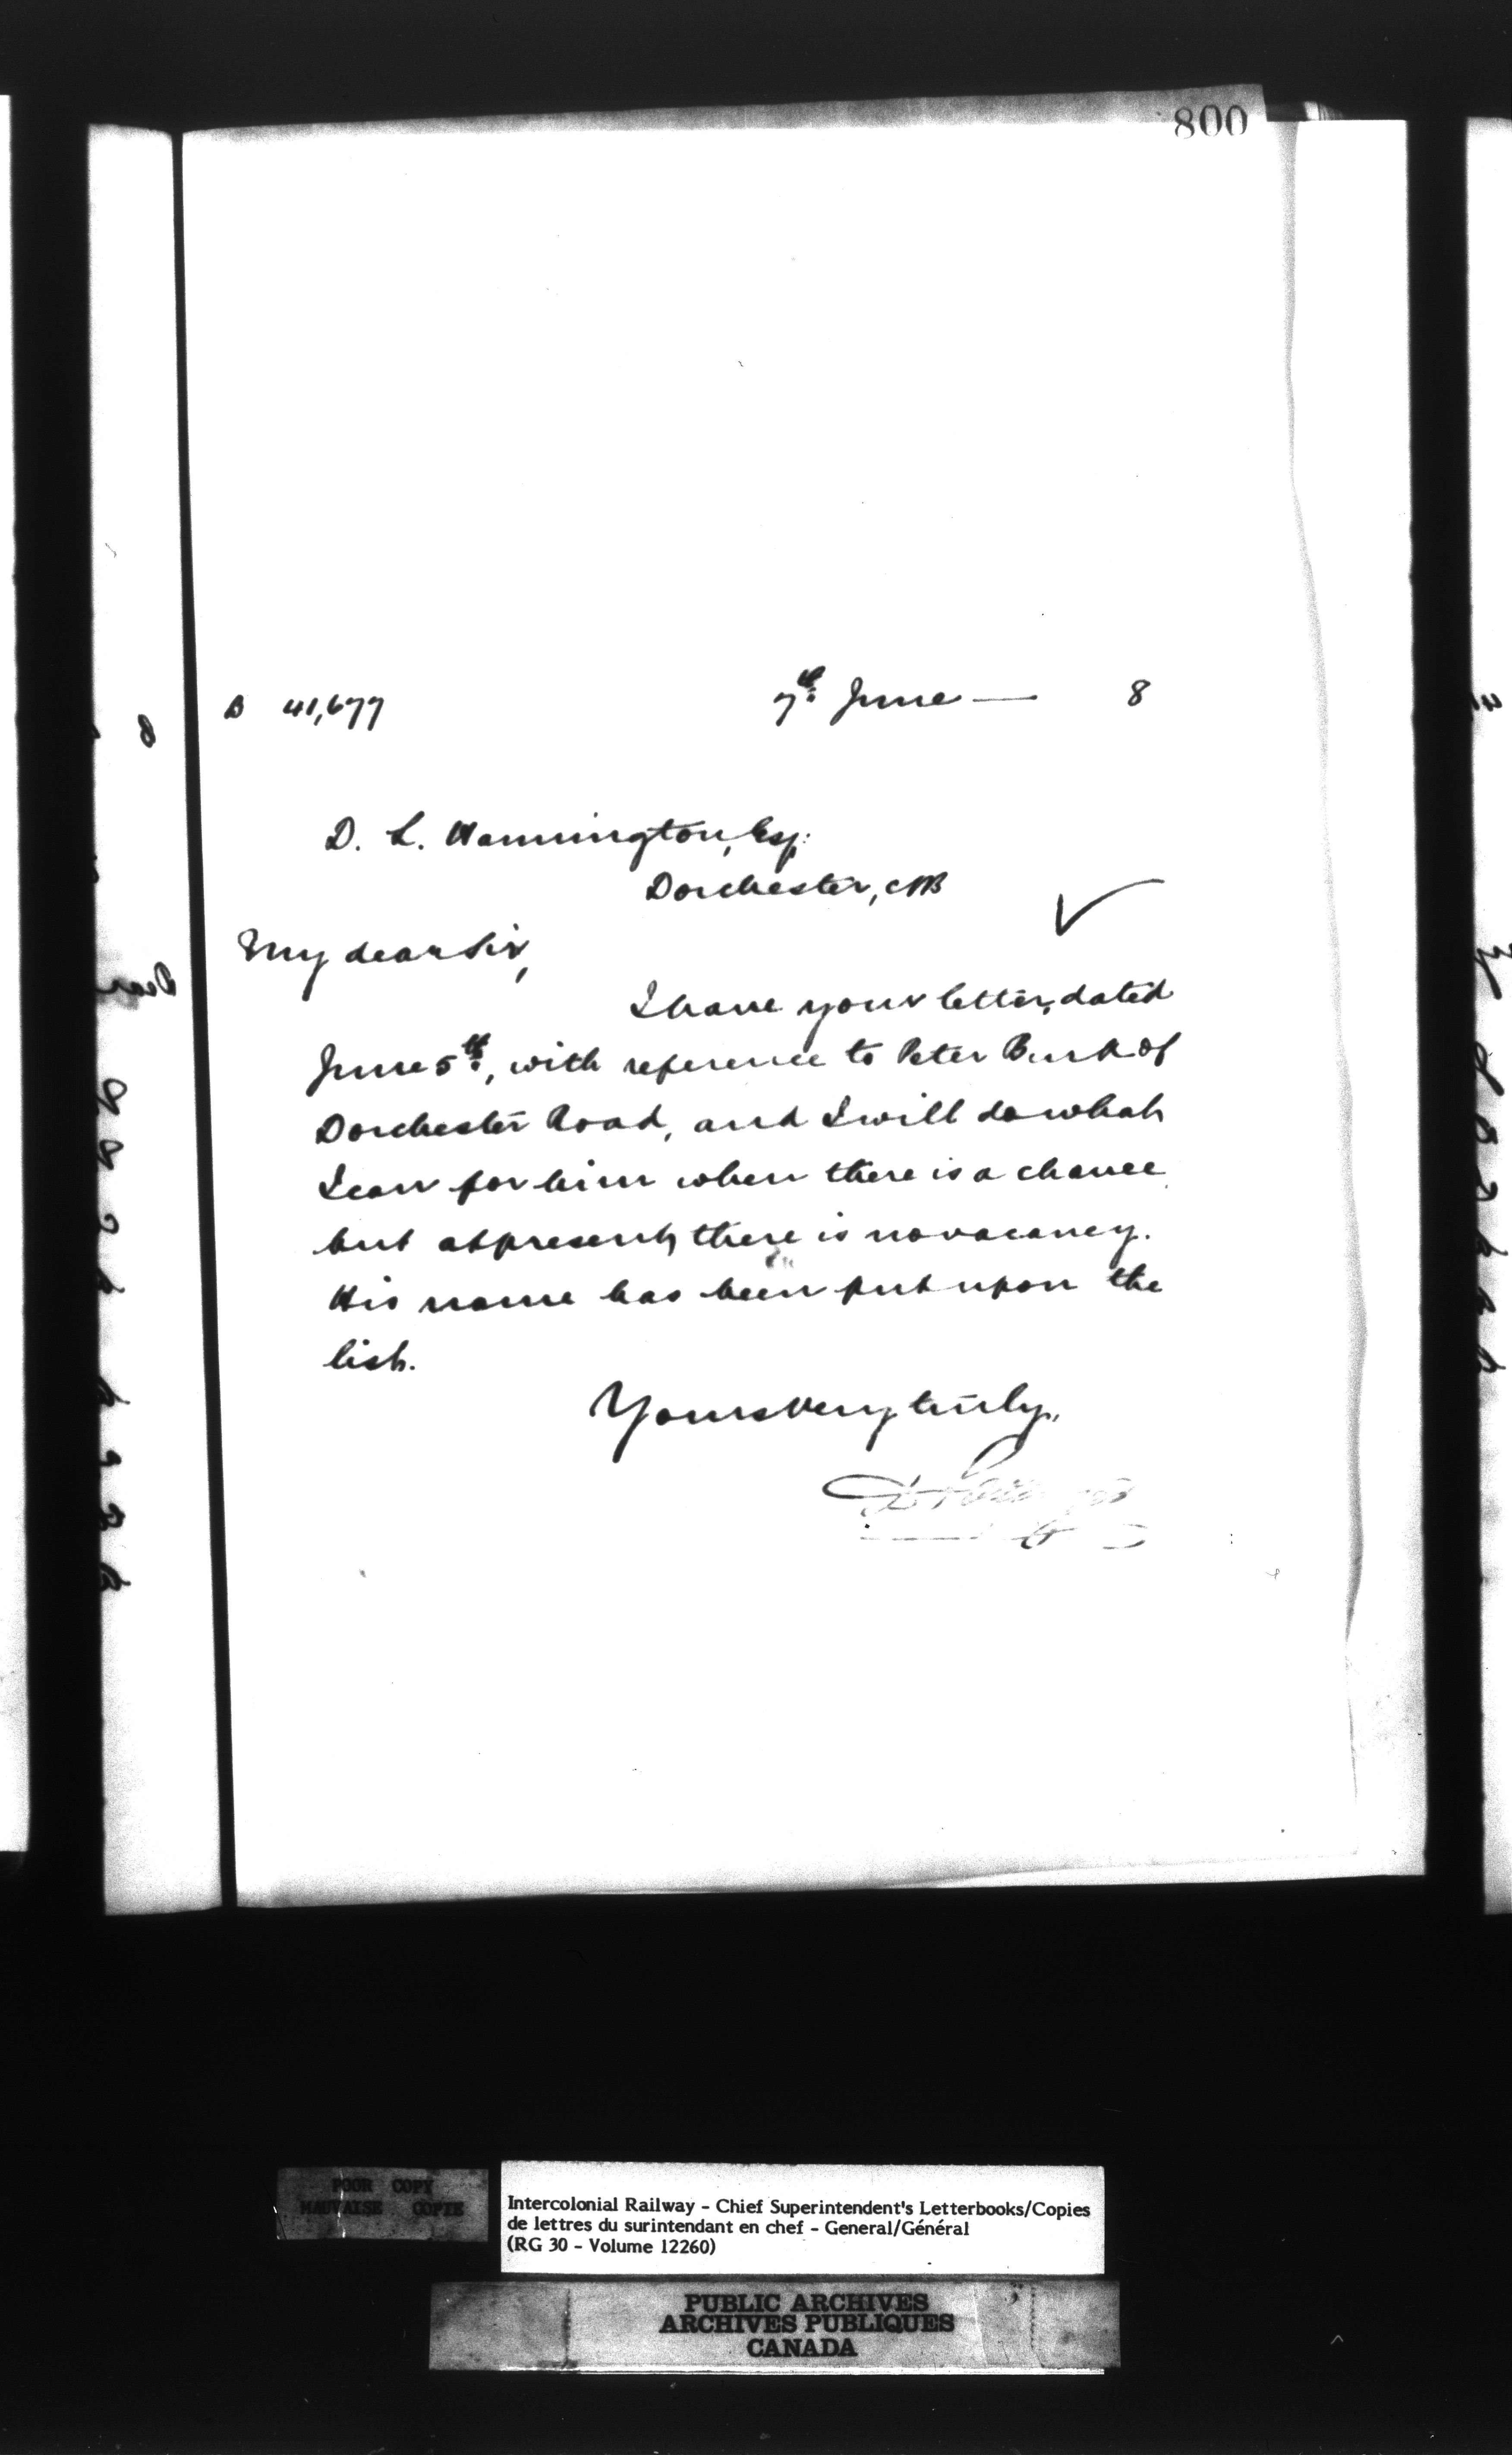 800
B 41,677 7th June — 8
D. L. Hannington, Esq:
Dorchester, NB
My dear Sir,
I have your letter, dated
June 5th, with reference to Peter Burk of
Dorchester Road, and I will do what
I can for him when there is a chance
but at present, there is no vacancy.
His name has been put upon the
list.
Yours very truly,
D Pottinger
POOR COPY
MAUVAISE COPIE
Intercolonial Railway - Chief Superintendent's Letterbooks/Copies
de lettres du surintendant en chef - General/Général
(RG 30 - Volume 12260)
PUBLIC ARCHIVES
ARCHIVES PUBLIQUES
CANADA